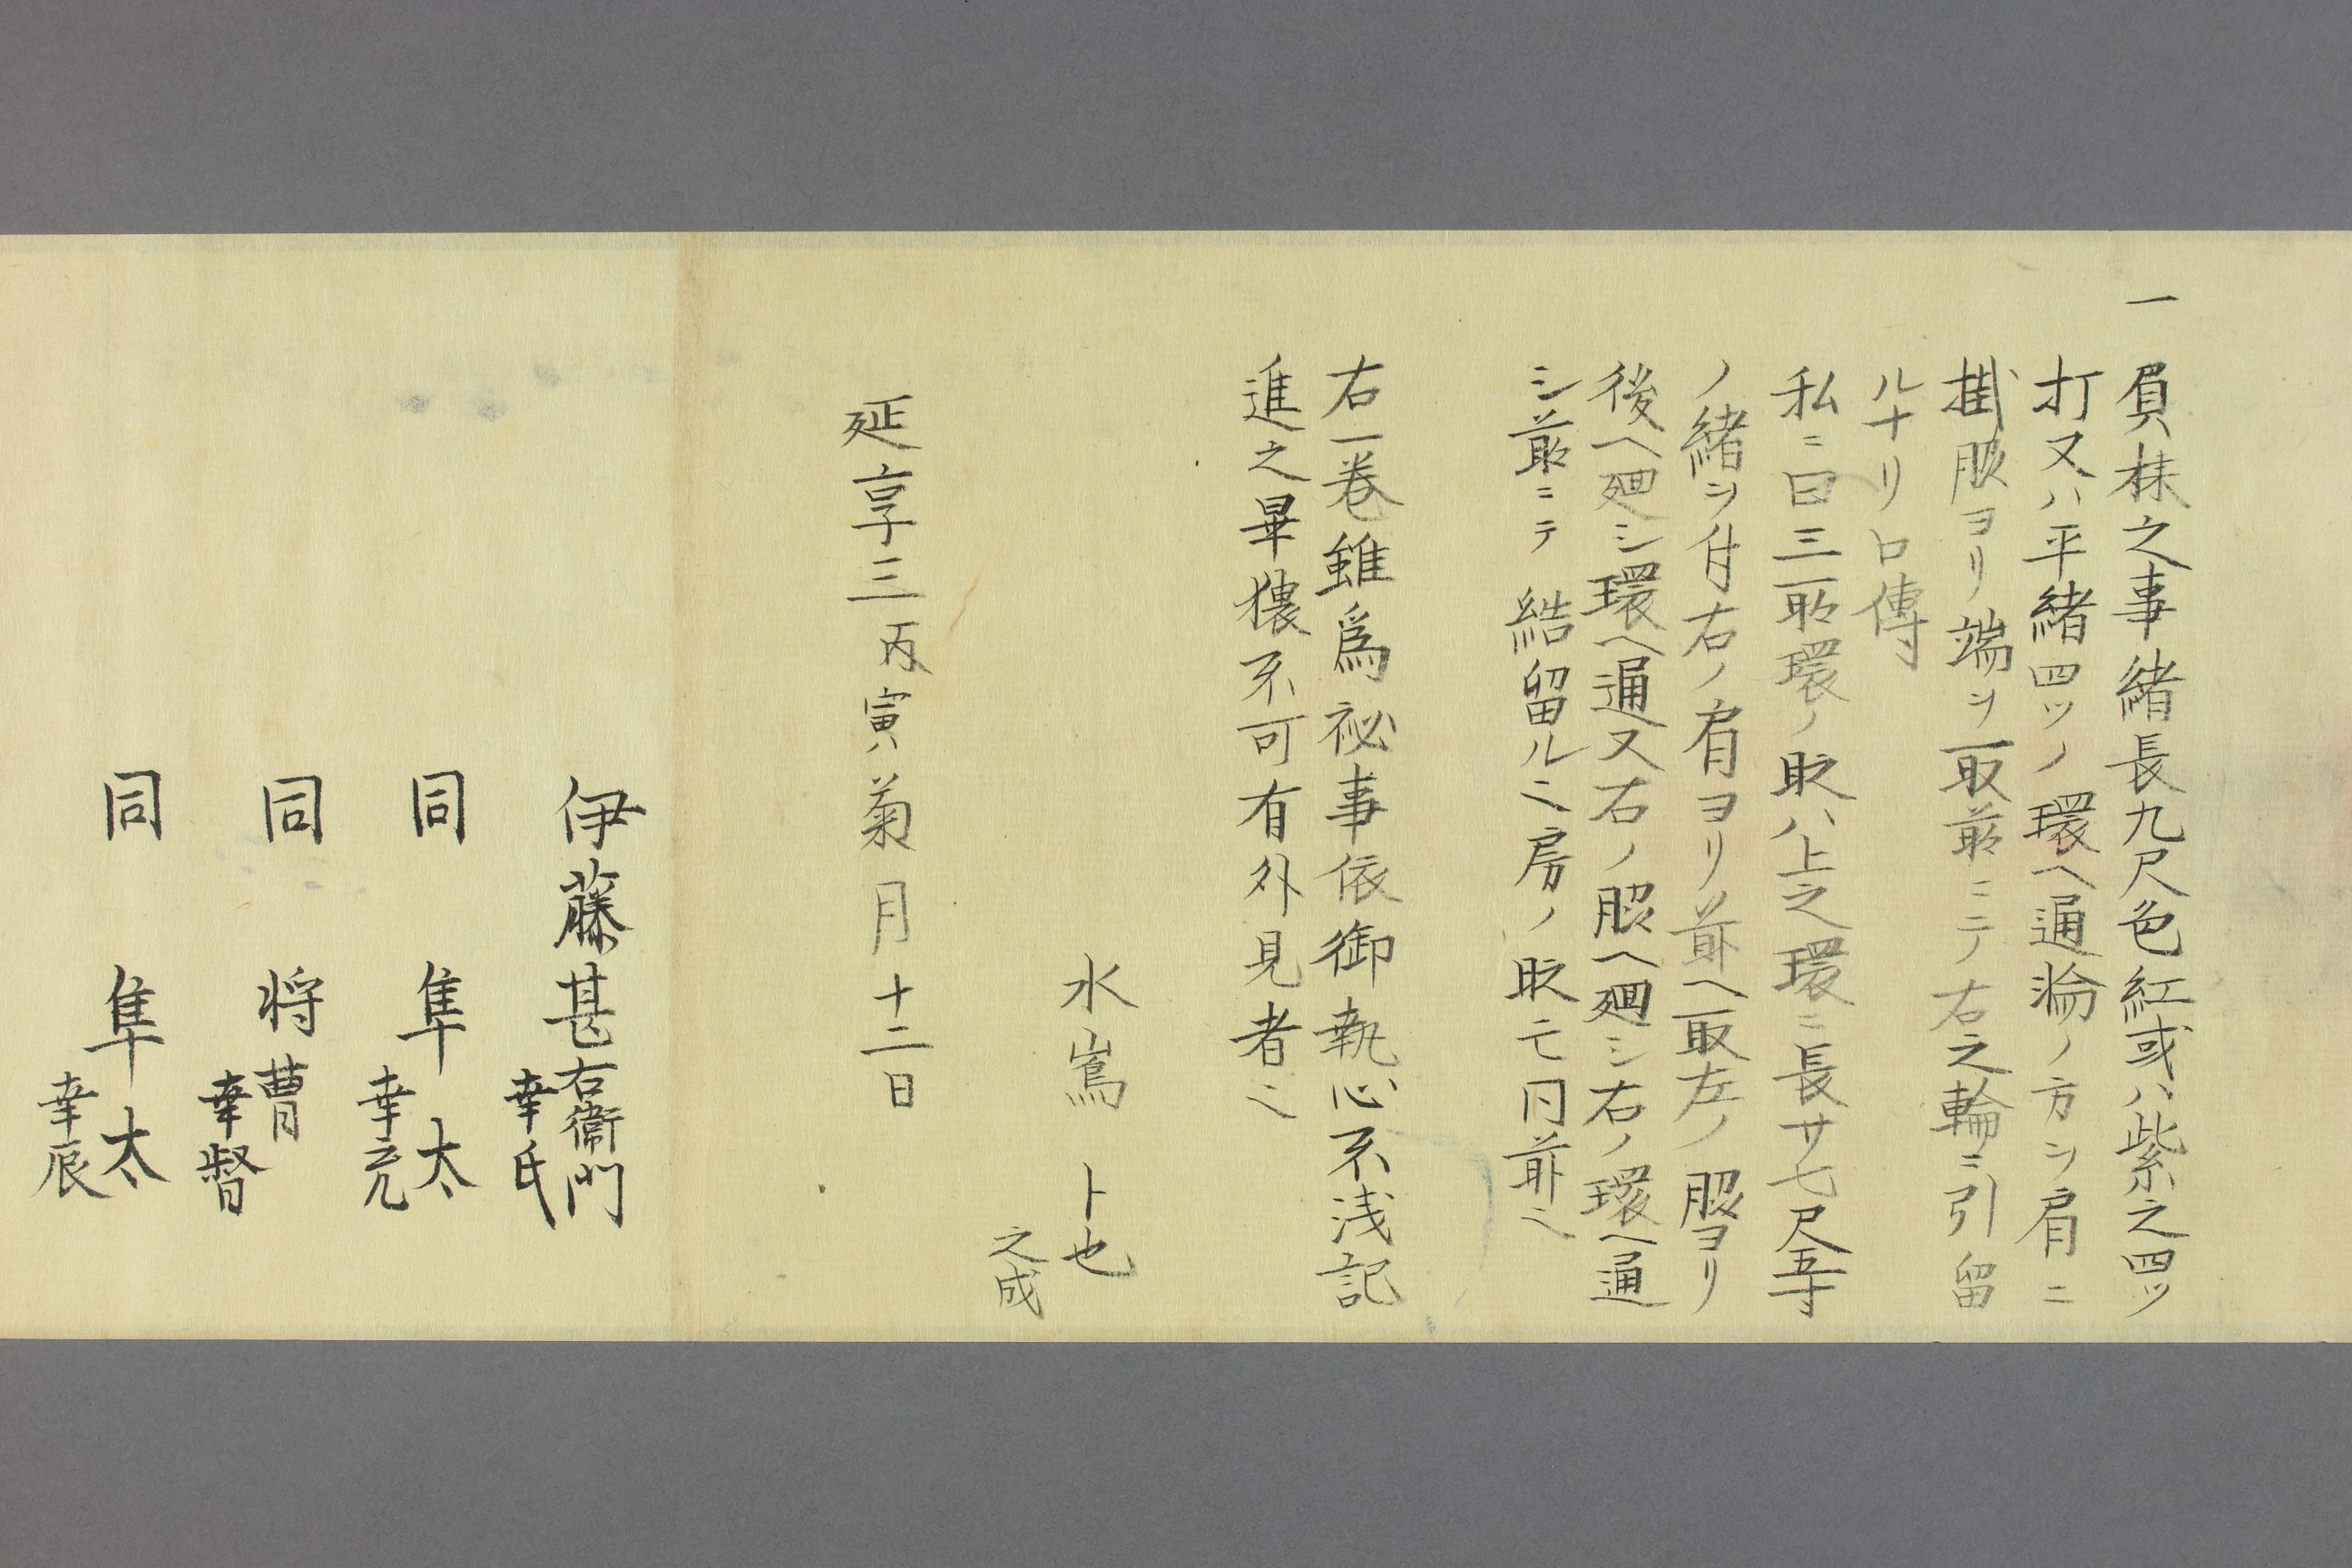 一 負様之事緒長九尺色紅或ハ紫之四ツ
打又ハ平緒四ツノ環ヘ通 ノ方シ肩ニ
掛脇ヨリ端ヲ取前ニテ右之輪ニ引留
ルナリ口傳
私ニ曰三 環ノ時ハ上之環ニ長サ七尺五寸
ノ緒ヲ付右ノ肩ヨリ前ヘ取左ノ脇ヨリ
後ヘ廻シ環ヘ通又右ノ脇ヘ廻シ右ノ環ヘ通
シ前ニテ結留ル也房ノ時モ同前也
右一巻雖爲祕事依御執心不浅記
進之畢猥不可有外見者也
水嶌卜也
之成
延享三丙寅菊月十二日
伊藤甚右衛門
幸氏
同 隼太
幸充
同 将曹
幸督
同 隼太
幸辰